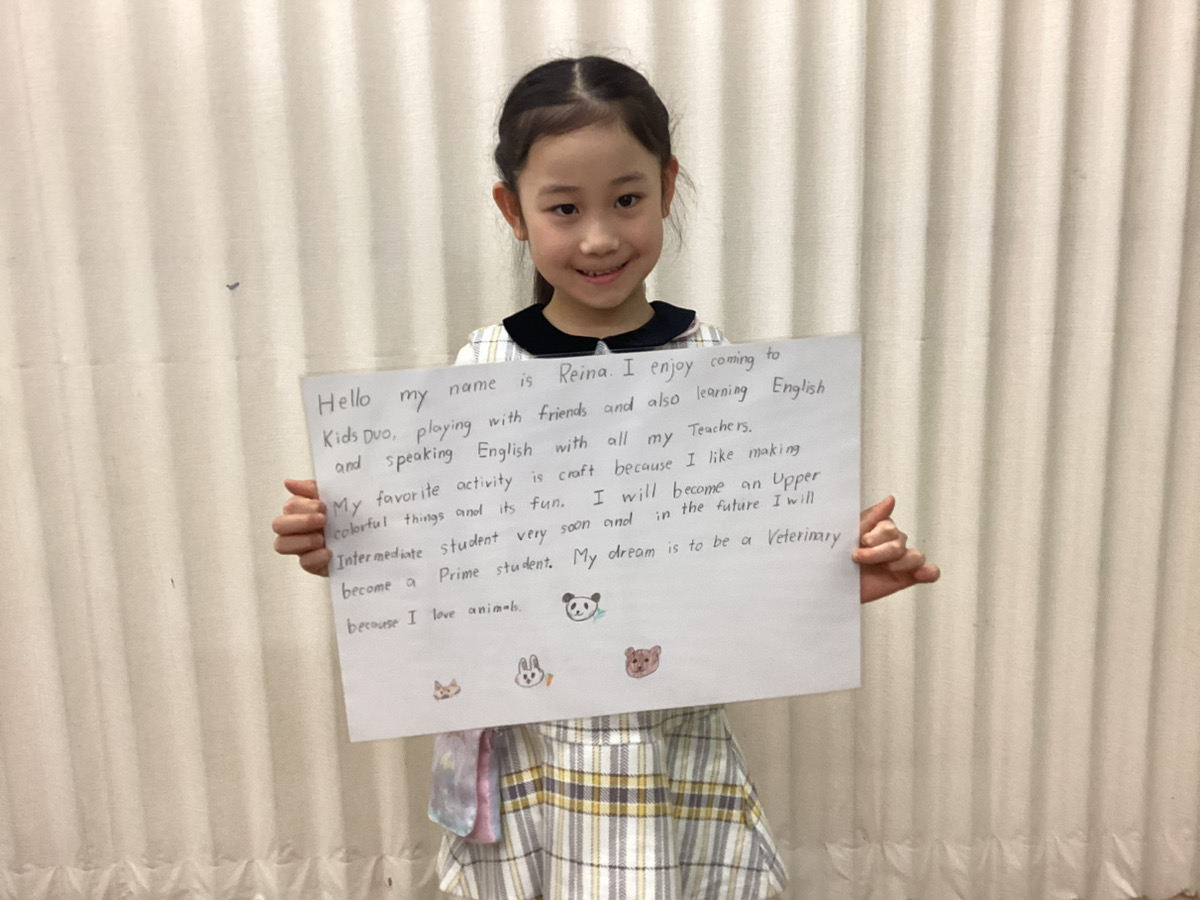 Hello my name is Reina. I enjoy coming to
Kids Duo, playing with friends and also learning English
and speaking English with all my Teachers.
My favorite activity is craft because I like making
colorful things and its fun. I will become an Upper
Intermediate student very soon and in the future I will
become a Prime student. My dream is to be a Veterinary
because I love animals.